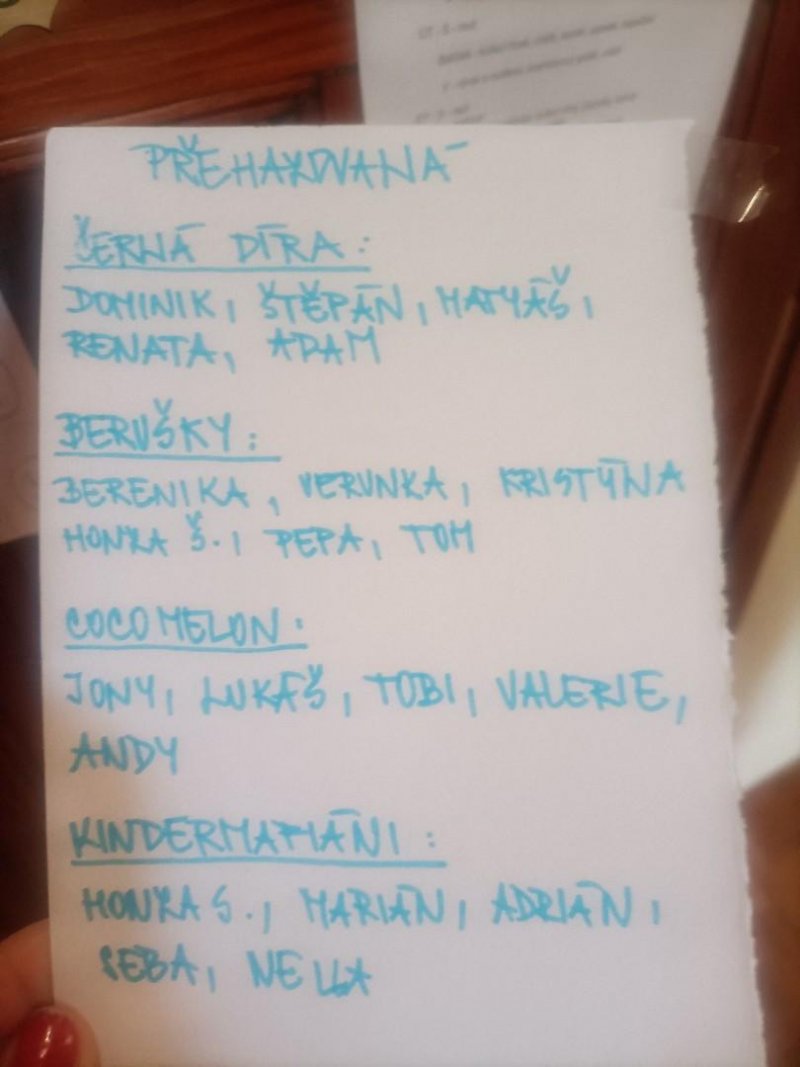 PŘEHAZOVANÁ
ČERNÁ DÍRA:
DOMINIK, ŠTĚPÁN, MATYÁŠ,
RENATA, ADAM
BERUŠKY:
BERENIKA, VERUNKA, KRISTÝNA
HONZA Š., PEPA, TOM
COCOMELON:
JONY, LUKÁŠ, TOBI, VALERIE,
ANDY
KINDERMAFIÁNI:
HONZA S., MARIÁN, ADRIÁN,
SEBA, NELLA